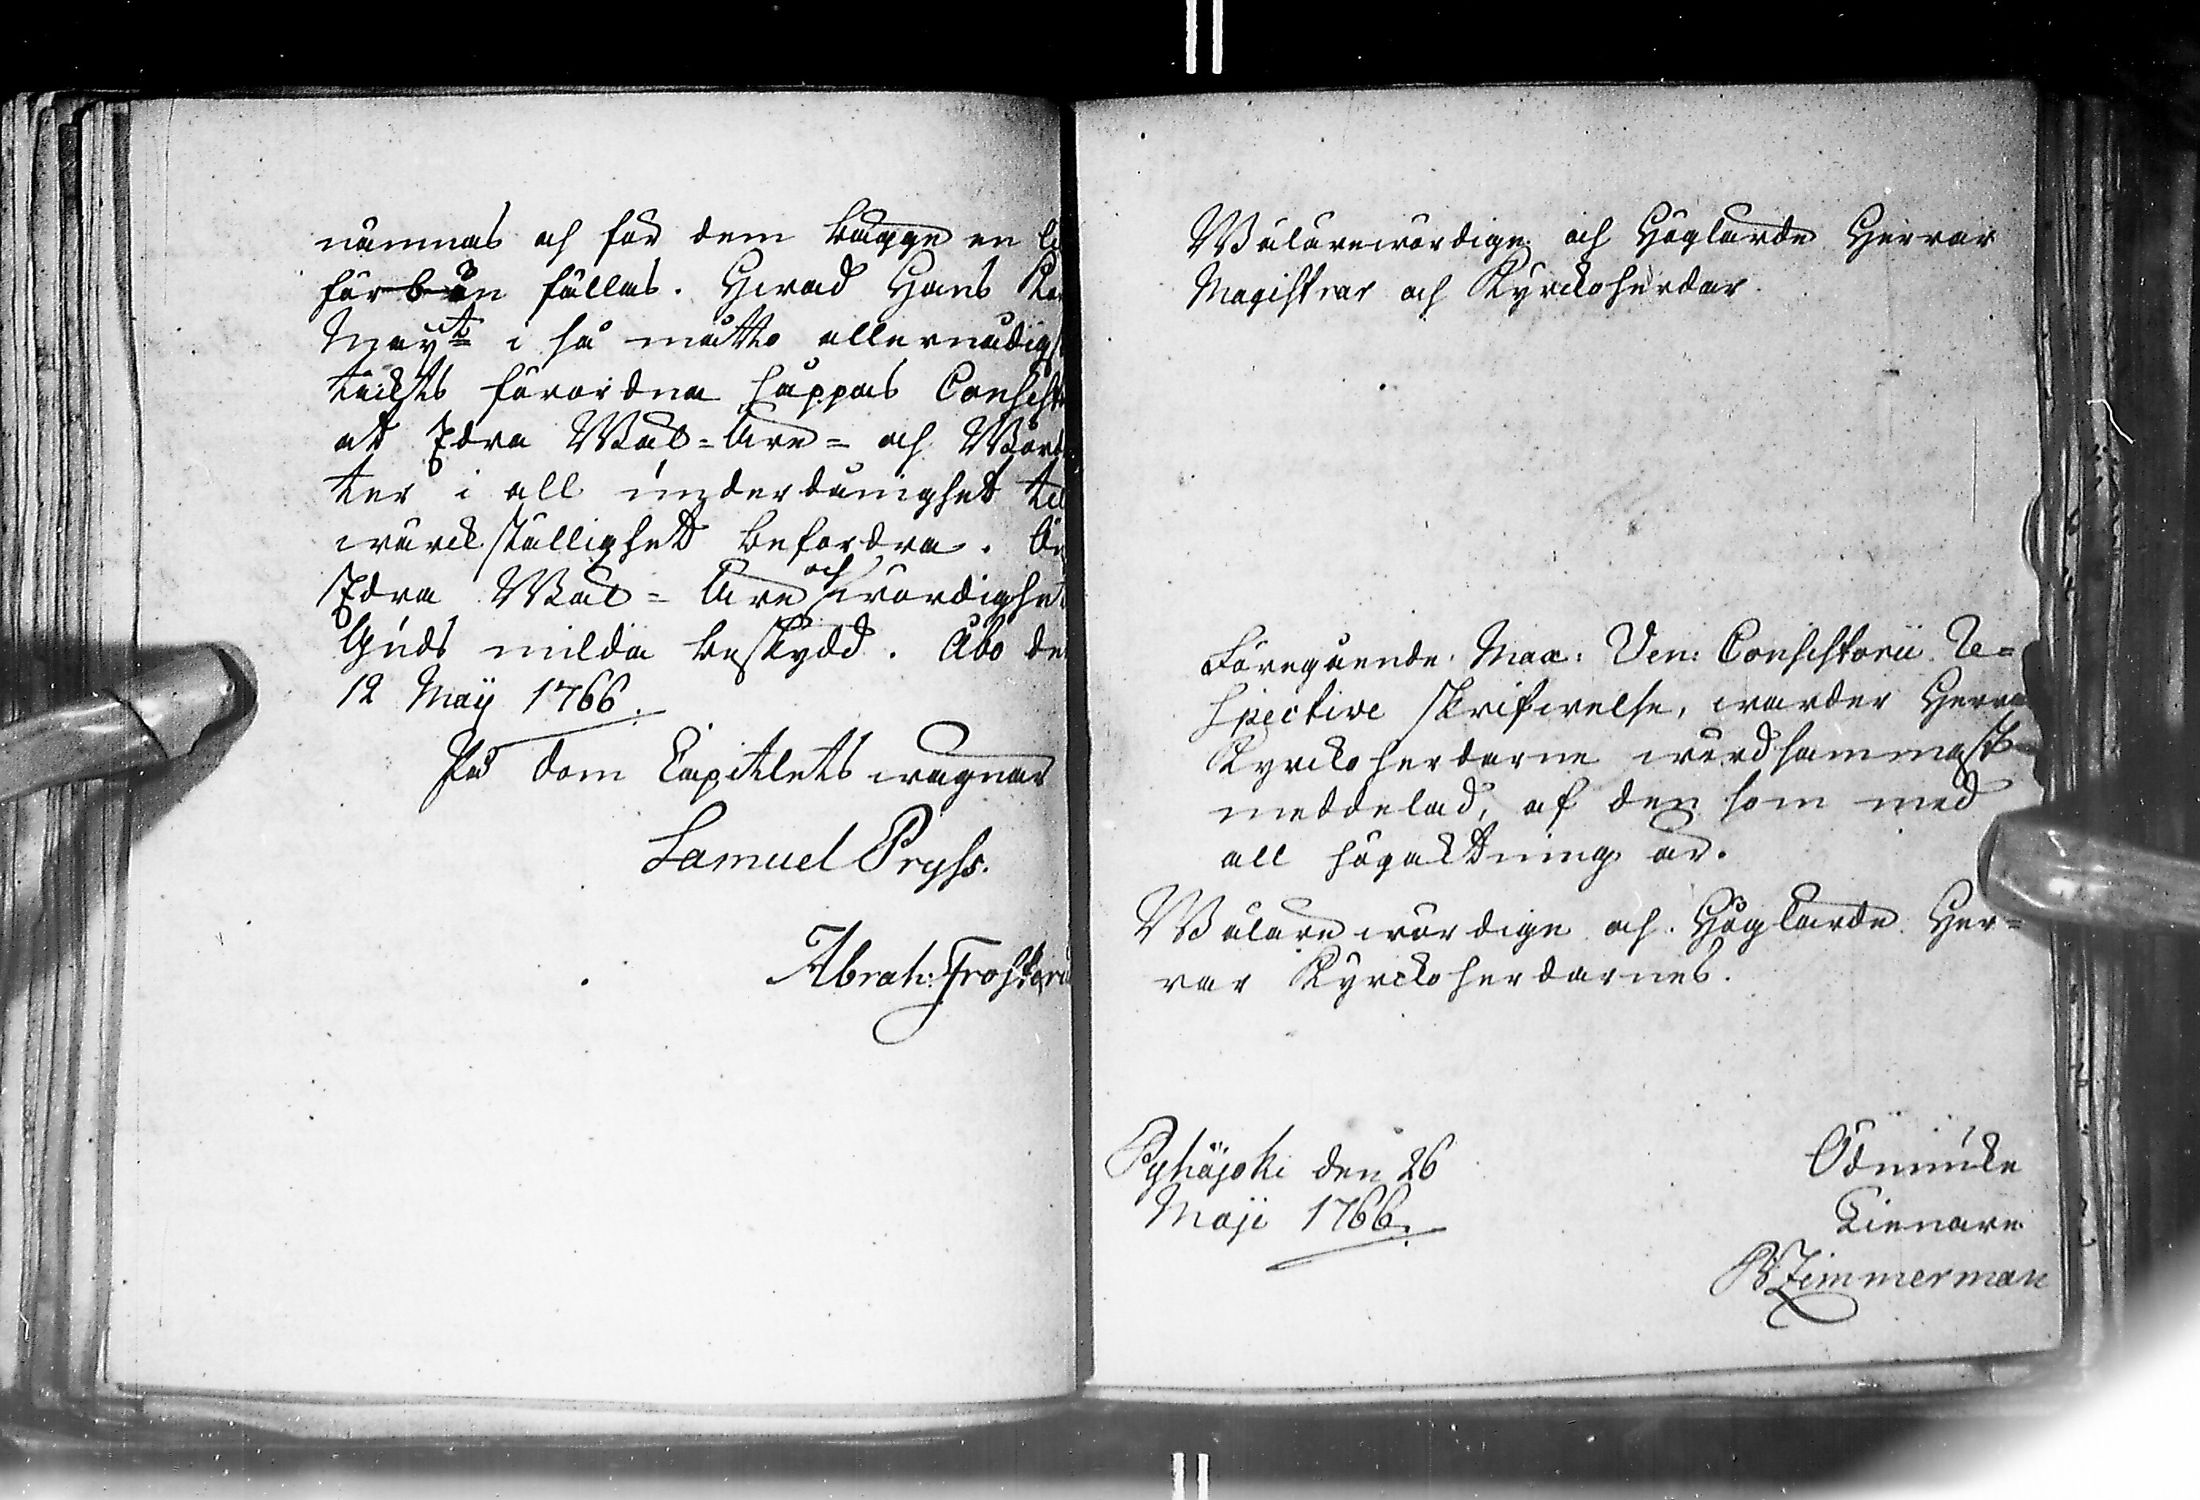 nämnas och för dem bägge en
förbön fällas. Hwad Hans
Maytt i så måtto allernådigst
täckts förordna håppas Consist
at Edra Wäl=Äre= och Wörd
ter i all underdånighet til
wärckställighet befordra.
Edra Wäl= Äre och wördighet
Guds milda beskydd. Åbo den
12 Maij 1766.
På Dom Capitlets wägnar
Samuel Pryss.
Abrah: Frosterus
Wälärewördige och Höglärde Herrar
Magistrar och Kyrckoherdar.
Föregående Max: Ven: Consistorii Re=
spective skrifwelse, warder Herrar
Kyrckoherdarne wördsammast
meddelad, af den som med
all högacktning är.
Wälärewördige och Höglärde Her=
rar Kyrckoherdarnes.
Pyhäjoki den 26
Maji 1766.
Ödmiuke
Tienare
Zimmerman